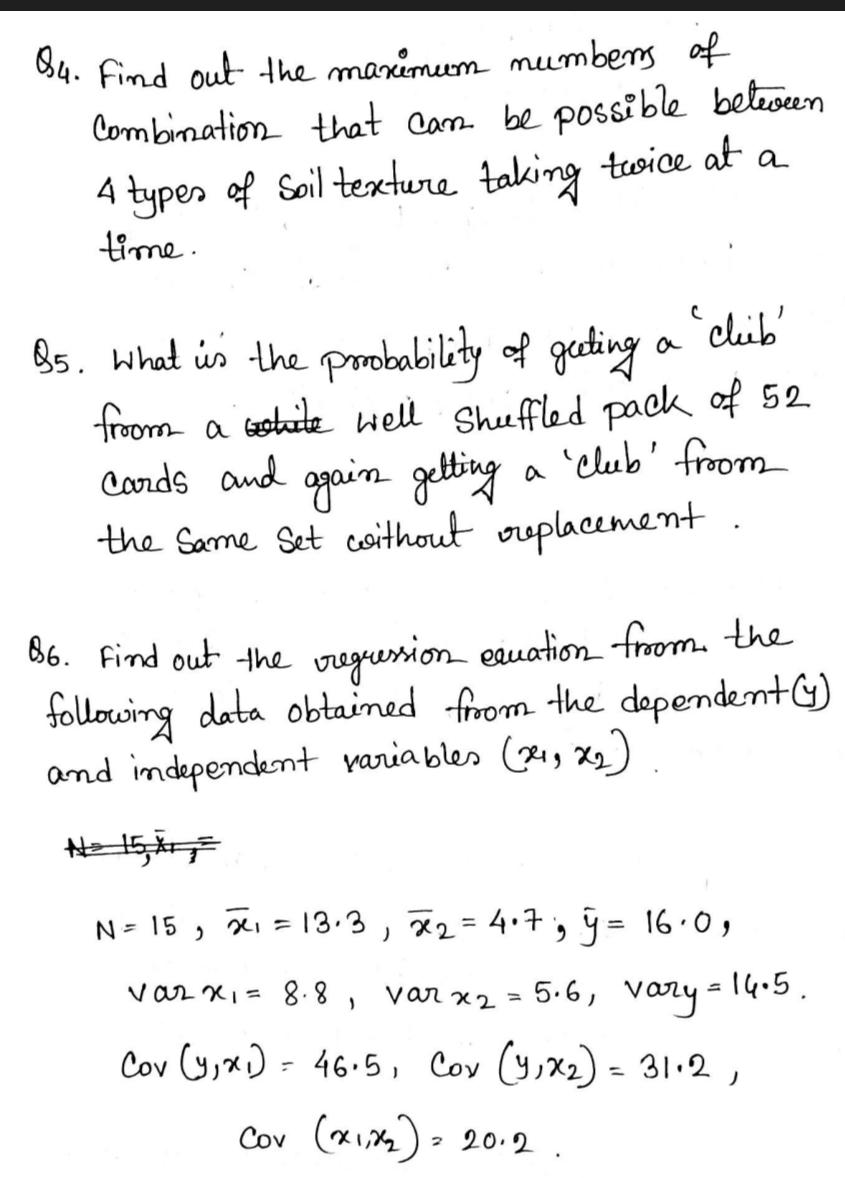 Q4. Find out the maximum numbers of
Combination that can be possible between
4 types of Soil texture taking twice at a
time.
Q5. What is the probability of geeting a 'club'
from a white well Shuffled pack of 52
Cards and again getting a 'club' from
the Same Set without replacement.
Q6. Find out the regression equation from the
following data obtained from the dependent (y)
and independent variables (x₁, x₂).
N= 15, x̄₁, =
N= 15, x̄₁ = 13.3, x̄₂ = 4.7, ȳ = 16.0,
var x₁ = 8.8, var x₂ = 5.6, vary = 14.5.
Cov (y,x₁) = 46.5, Cov (y,x₂) = 31.2,
Cov (x₁,x₂) = 20.2.